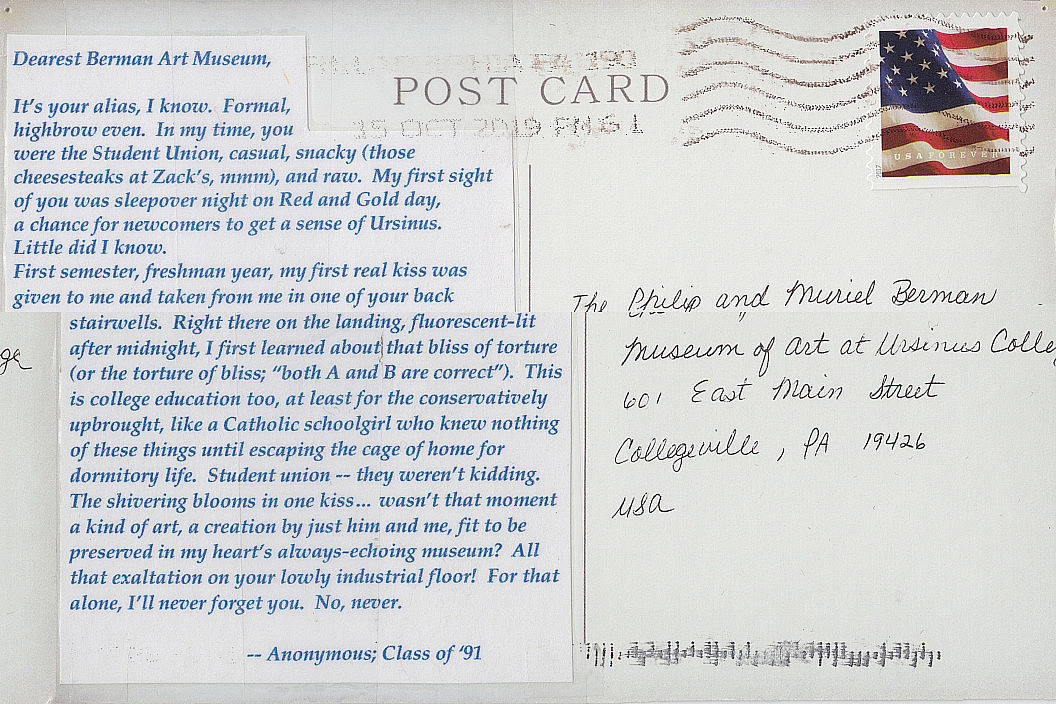 Dearest Berman Art Museum,
It's your alias, I know.  Formal,
highbrow even.  In my time, you
were the Student Union, casual, snacky (those
cheesesteaks at Zack's, mmm), and raw.  My first sight
of you was sleepover night on Red and Gold day,
a chance for newcomers to get a sense of Ursinus.
Little did I know.
First semester, freshman year, my first real kiss was
given to me and taken from me in one of your back
stairwells.  Right there on the landing, fluorescent-lit
after midnight, I first learned about that bliss of torture
(or the torture of bliss; "both A and B are correct").  This
is college education too, at least for the conservatively
upbrought, like a Catholic schoolgirl who knew nothing
of these things until escaping the cage of home for
dormitory life.  Student union -- they weren't kidding.
The shivering blooms in one kiss... wasn't that moment
a kind of art, a creation by just him and me, fit to be
preserved in my heart's always-echoing museum?  All
that exaltation on your lowly industrial floor!  For that
alone, I'll never forget you.  No, never.
-- Anonymous; Class of '91
PA 190
POST CARD
15 OCT 2019 PM 6 L
USA FOREVER
2017
The Philip and Muriel Berman
Museum of Art at Ursinus Colle
ge
601 East Main Street
Collegeville, PA 19426
USA